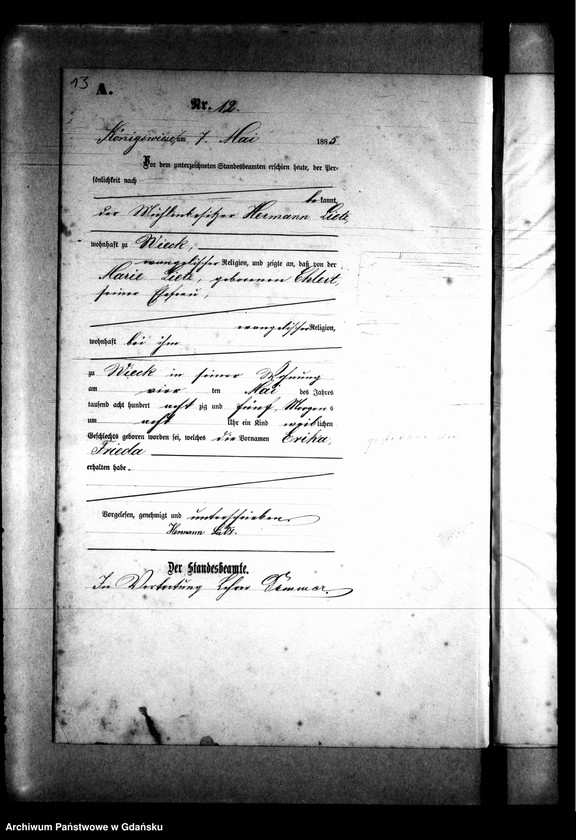 13
A.
Nr. 12.
Königswiese am 7. Mai 1885
Vor dem unterzeichneten Standesbeamten erschien heute, der Per-
sönlichkeit nach
bekannt,
der Mühlenbesitzer Hermann Lietz,
wohnhaft zu Wieck,
evangelischer Religion, und zeigte an, daß von der
Marie Lietz, geborenen Ehlert,
seiner Ehefrau,
evangelischer Religion,
wohnhaft bei ihm
zu Wieck in seiner Wohnung
am vier ten Mai des Jahres
tausend acht hundert acht zig und fünf, Morgens
um acht Uhr ein Kind weiblichen
Geschlechts geboren worden sei, welches die Vornamen Erika,
Frieda
erhalten habe.
Vorgelesen, genehmigt und unterschrieben.
Hermann Lietz.
Der Standesbeamte.
In Vertretung Lehrer
Archiwum Państwowe w Gdańsku